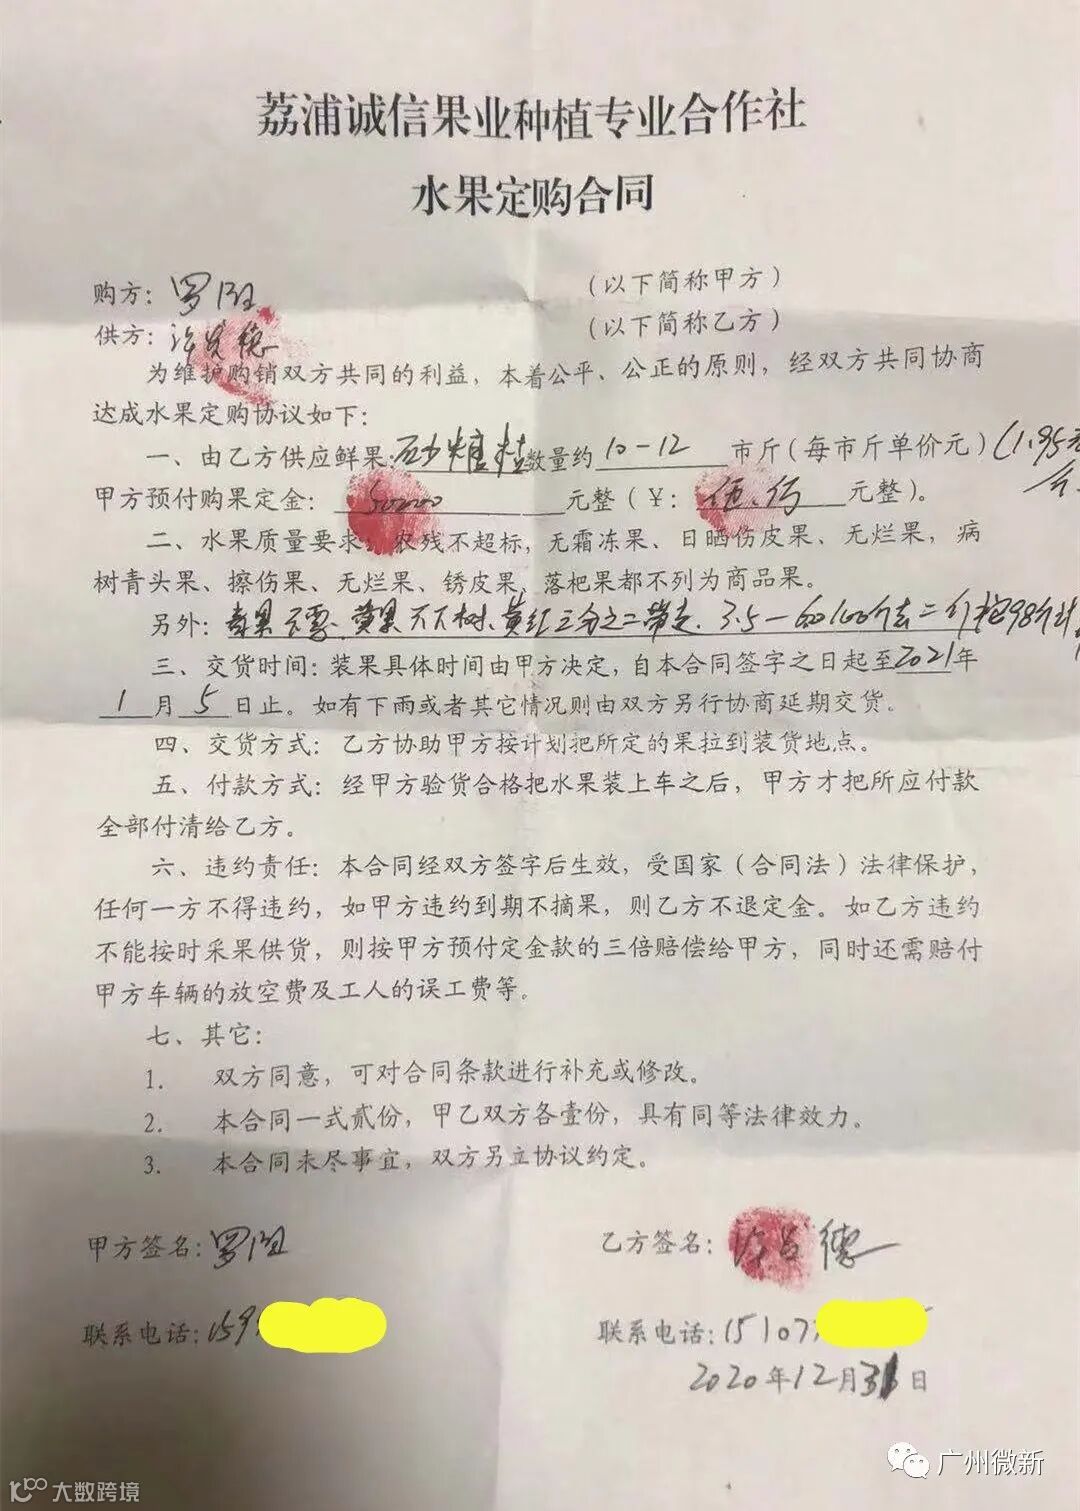 荔浦诚信果业种植专业合作社
水果定购合同
购方：罗阳 （以下简称甲方）
供方：德 （以下简称乙方）
为维护购销双方共同的利益，本着公平、公正的原则，经双方共同协商
达成水果定购协议如下：
一、由乙方供应鲜果：砂糖桔数量约10-12市斤（每市斤单价元）（1.95元
甲方预付购果定金：50000元整（￥：元整）。
二、水果质量要求：农残不超标，无霜冻果、日晒伤皮果、无烂果，病
树青头果、擦伤果、无烂果、锈皮果，落杷果都不列为商品果。
另外：青果不要、黄果不下树、黄红三分之二带走、3.5-60 100斤去二斤98斤计
三、交货时间：装果具体时间由甲方决定，自本合同签字之日起至2021年
1月5日止。如有下雨或者其它情况则由双方另行协商延期交货。
四、交货方式：乙方协助甲方按计划把所定的果拉到装货地点。
五、付款方式：经甲方验货合格把水果装上车之后，甲方才把所应付款
全部付清给乙方。
六、违约责任：本合同经双方签字后生效，受国家（合同法）法律保护，
任何一方不得违约，如甲方违约到期不摘果，则乙方不退定金。如乙方违约
不能按时采果供货，则按甲方预付定金款的三倍赔偿给甲方，同时还需赔付
甲方车辆的放空费及工人的误工费等。
七、其它：
1. 双方同意，可对合同条款进行补充或修改。
2. 本合同一式贰份，甲乙双方各壹份，具有同等法律效力。
3. 本合同未尽事宜，双方另立协议约定。
甲方签名：罗阳 乙方签名：德
联系电话：159 联系电话：15107
2020年12月31日
广州微新
大数跨境